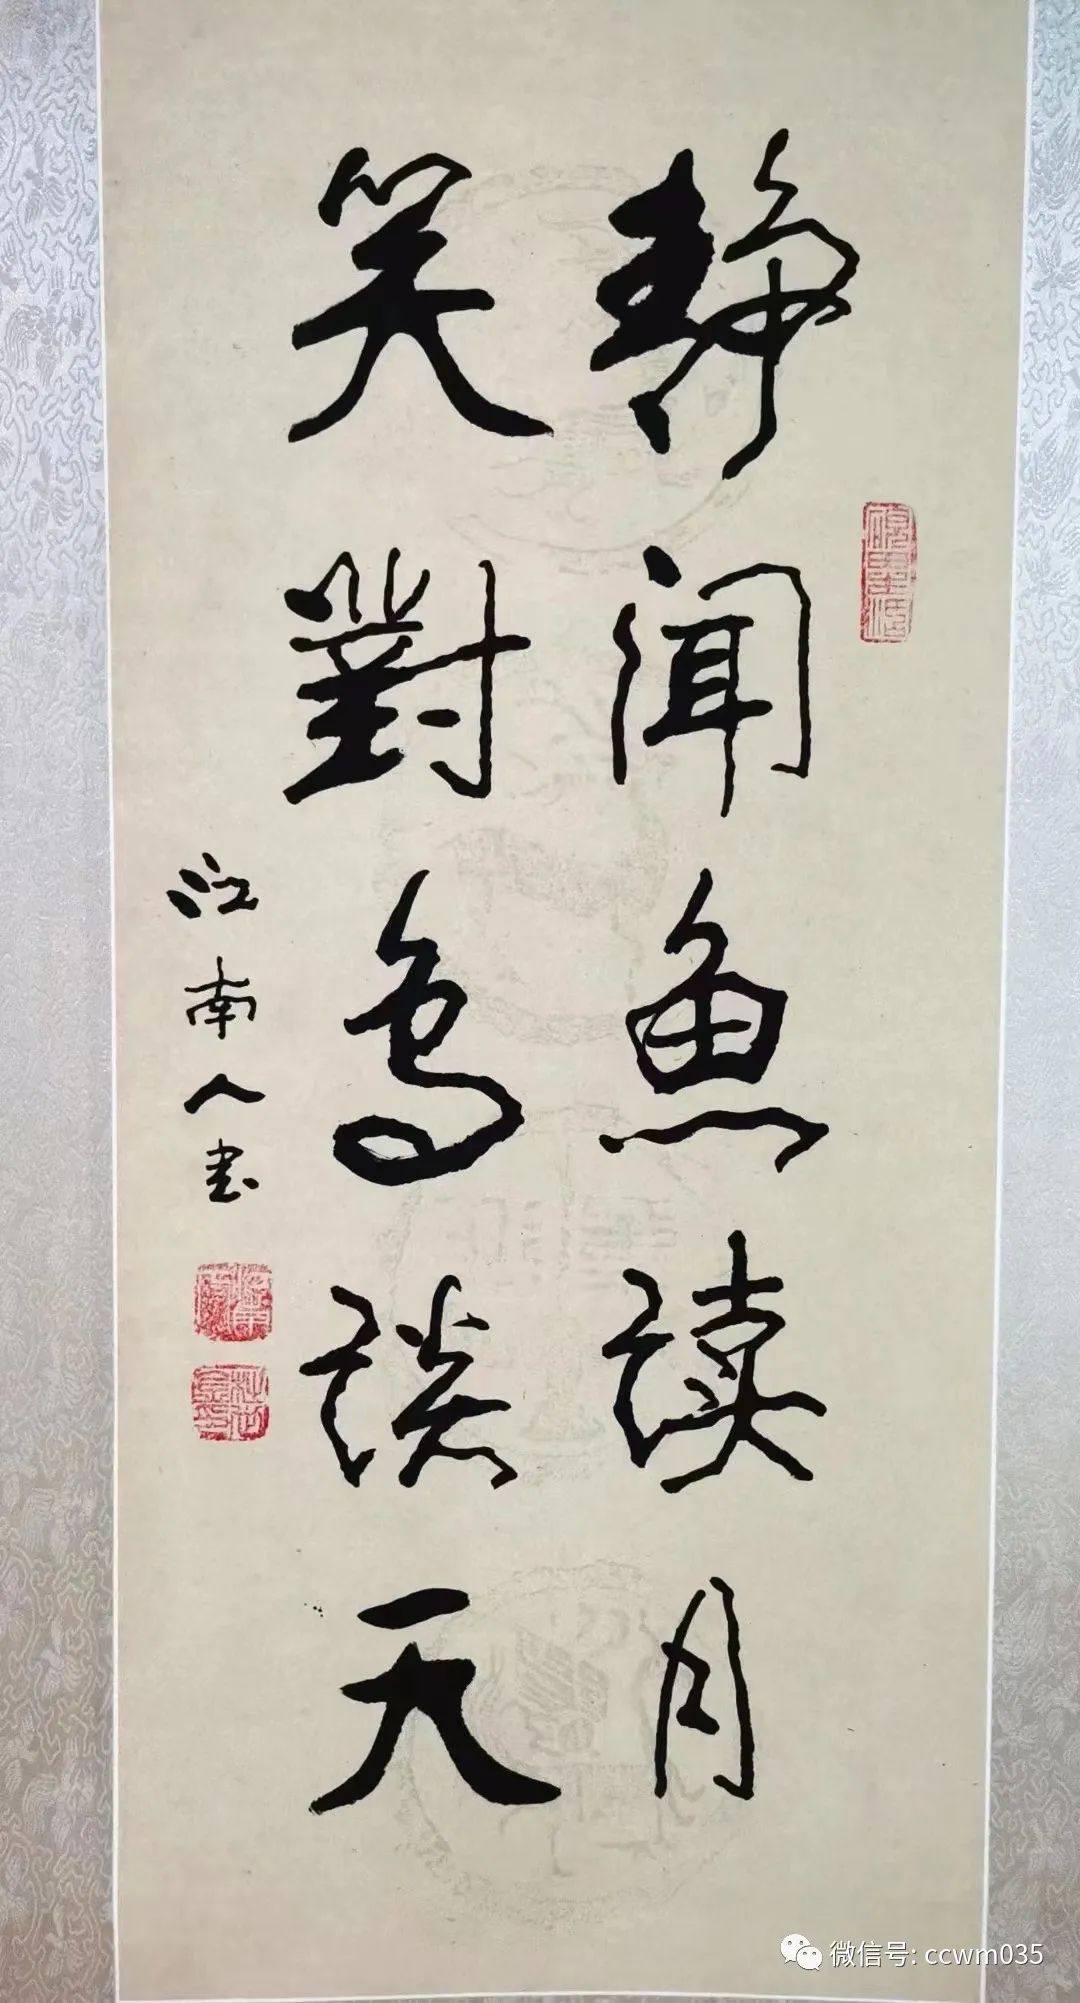 静闻鱼读月
笑對鸟谈天
江南人书
微信号: ccwm035